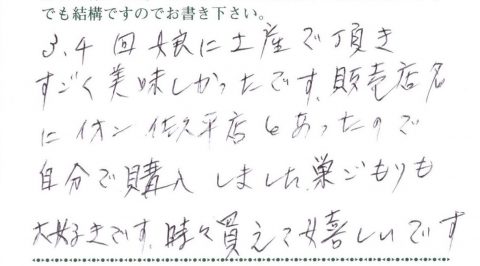 でも結構ですのでお書き下さい。
3、4回娘に土産で頂き
すごく美味しかったです、販売店名
にイオン佐久平店もあったので
自分で購入しました、巣ごもりも
大好きです、時々買えて嬉しいです